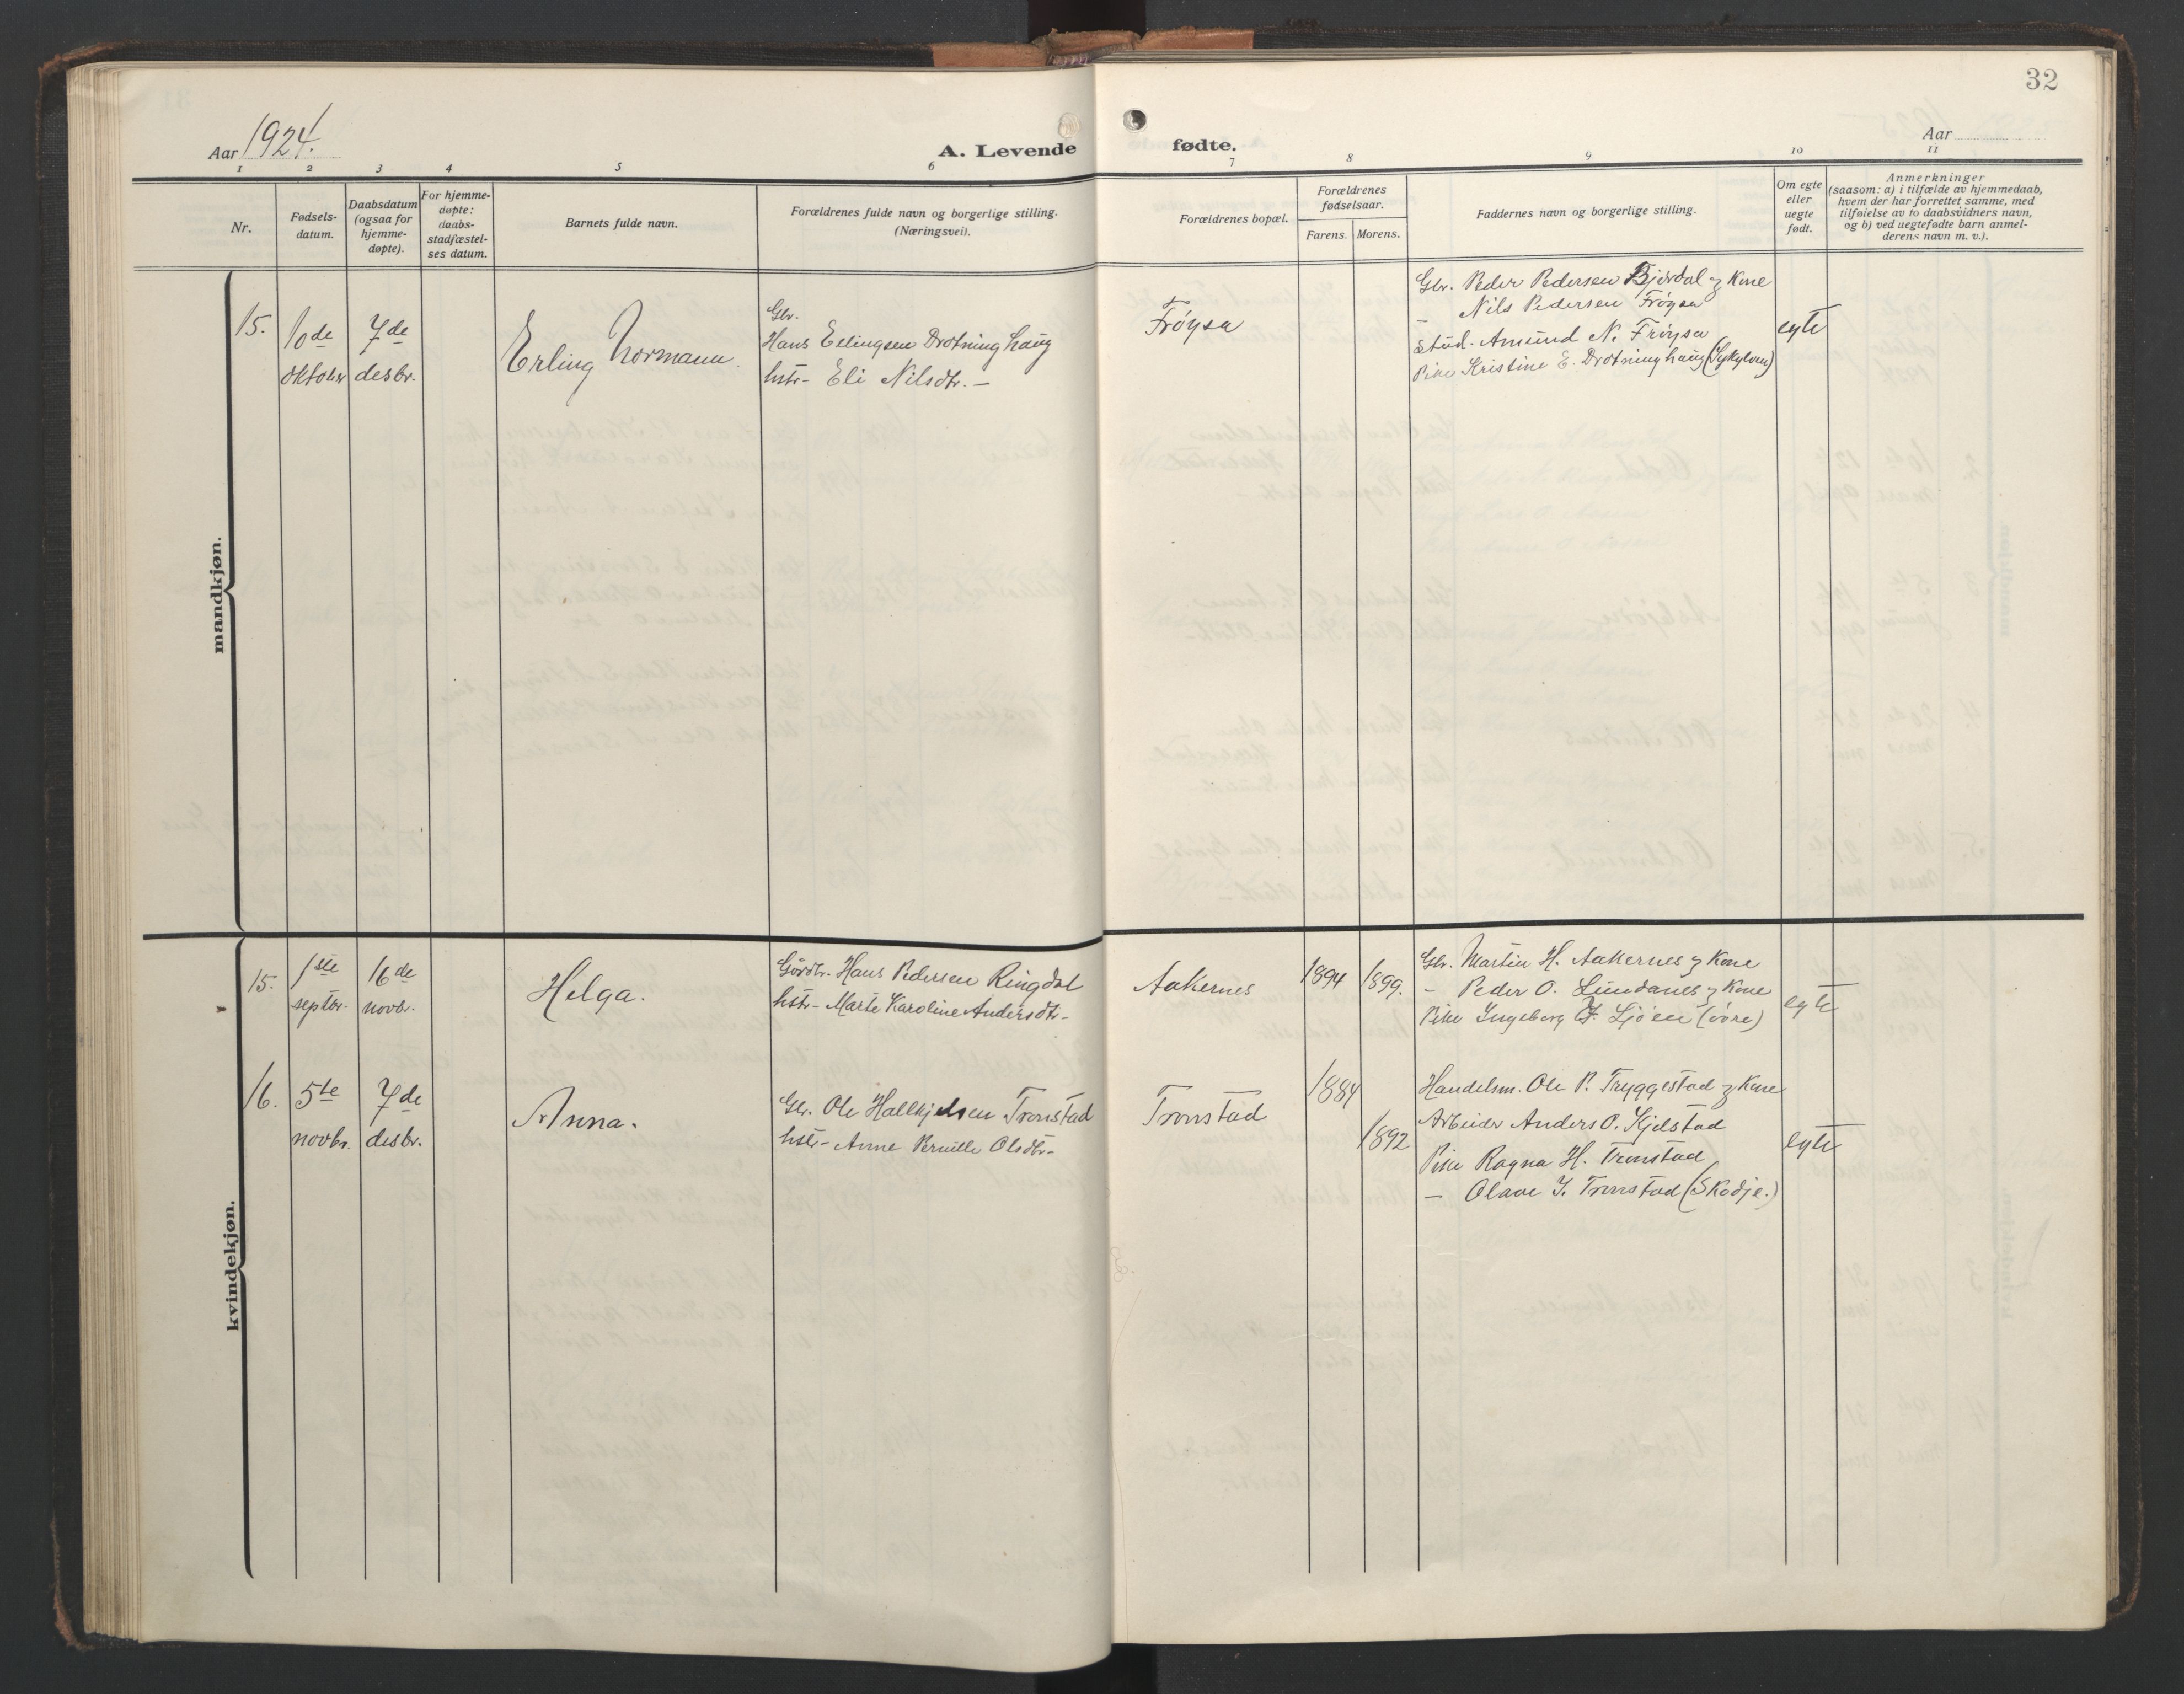 32
Aar 1924.
A. Levende fødte.
Aar
1 2 3 4 5 6 7 8 9 10 11
Nr.
Fødsels-
datum.
Daabsdatum
(ogsaa for
hjemme-
døpte).
For hjemme-
døpte:
daabs-
stadfæstel-
ses datum.
Barnets fulde navn.
Forældrenes fulde navn og borgerlige stilling.
(Næringsvei).
Forældrenes bopæl.
Forældrenes
fødselsaar.
Farens. Morens.
Faddernes navn og borgerlige stilling.
Om egte
eller
uegte
født.
Anmerkninger
(saasom: a) i tilfælde av hjemmedaab,
hvem der har forrettet samme, med
tilføielse av to daabsvidners navn,
og b) ved uegtefødte barn anmel-
derens navn m. v.).
mandkjøn.
15.
10de
oktober
7de
desbr.
Erling Normann.
Gbr.
Hans Erlingsen Drotninghaug
hstr- Eli Nilsdtr. —
Frøysa
Gbr. Peder Pedersen Bjørdal og Kone
— Nils Pedersen Frøysa
Stud. Amund N. Frøysa
Pike Kristine E. Drotninghaug (Sykylven)
egte
kvindekjøn.
15.
1ste
septbr.
16de
novbr.
Helga.
Gårdbr. Hans Pedersen Ringdal
hstr- Marte Karoline Andersdtr-
Aakernes
1894
1899.
Gbr. Martin H. Aakernes og Kone
- Peder O. Lundanes og Kone
Pike Ingeborg Sjøen (øvre)
egte
16.
5te
novbr.
7de
desbr.
Anna.
Gbr. Ole Hallkjelsen Tronstad
hstr- Anne Pernille Olsdtr-
Tronstad
1884
1892
Handelsm. Ole P. Tryggestad og Kone
Arbeider Anders O. Kjelstad
Pike Ragna H. Tronstad
— Olave J. Tronstad (Skodje.)
egte